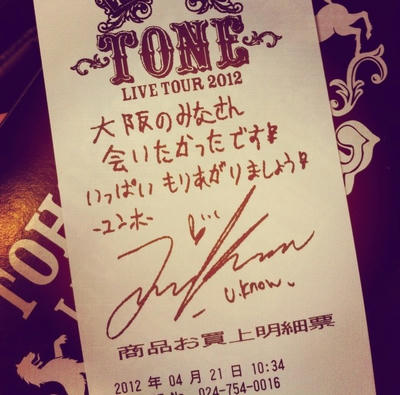 TONE
LIVE TOUR 2012
大阪のみなさん
会いたかったです!
いっぱい もりあがりましょう!
-ユンホ-
U.Know
商品お買上明細票
2012 年 04 月 21 日 10:34
No. 024-754-0016
TOH